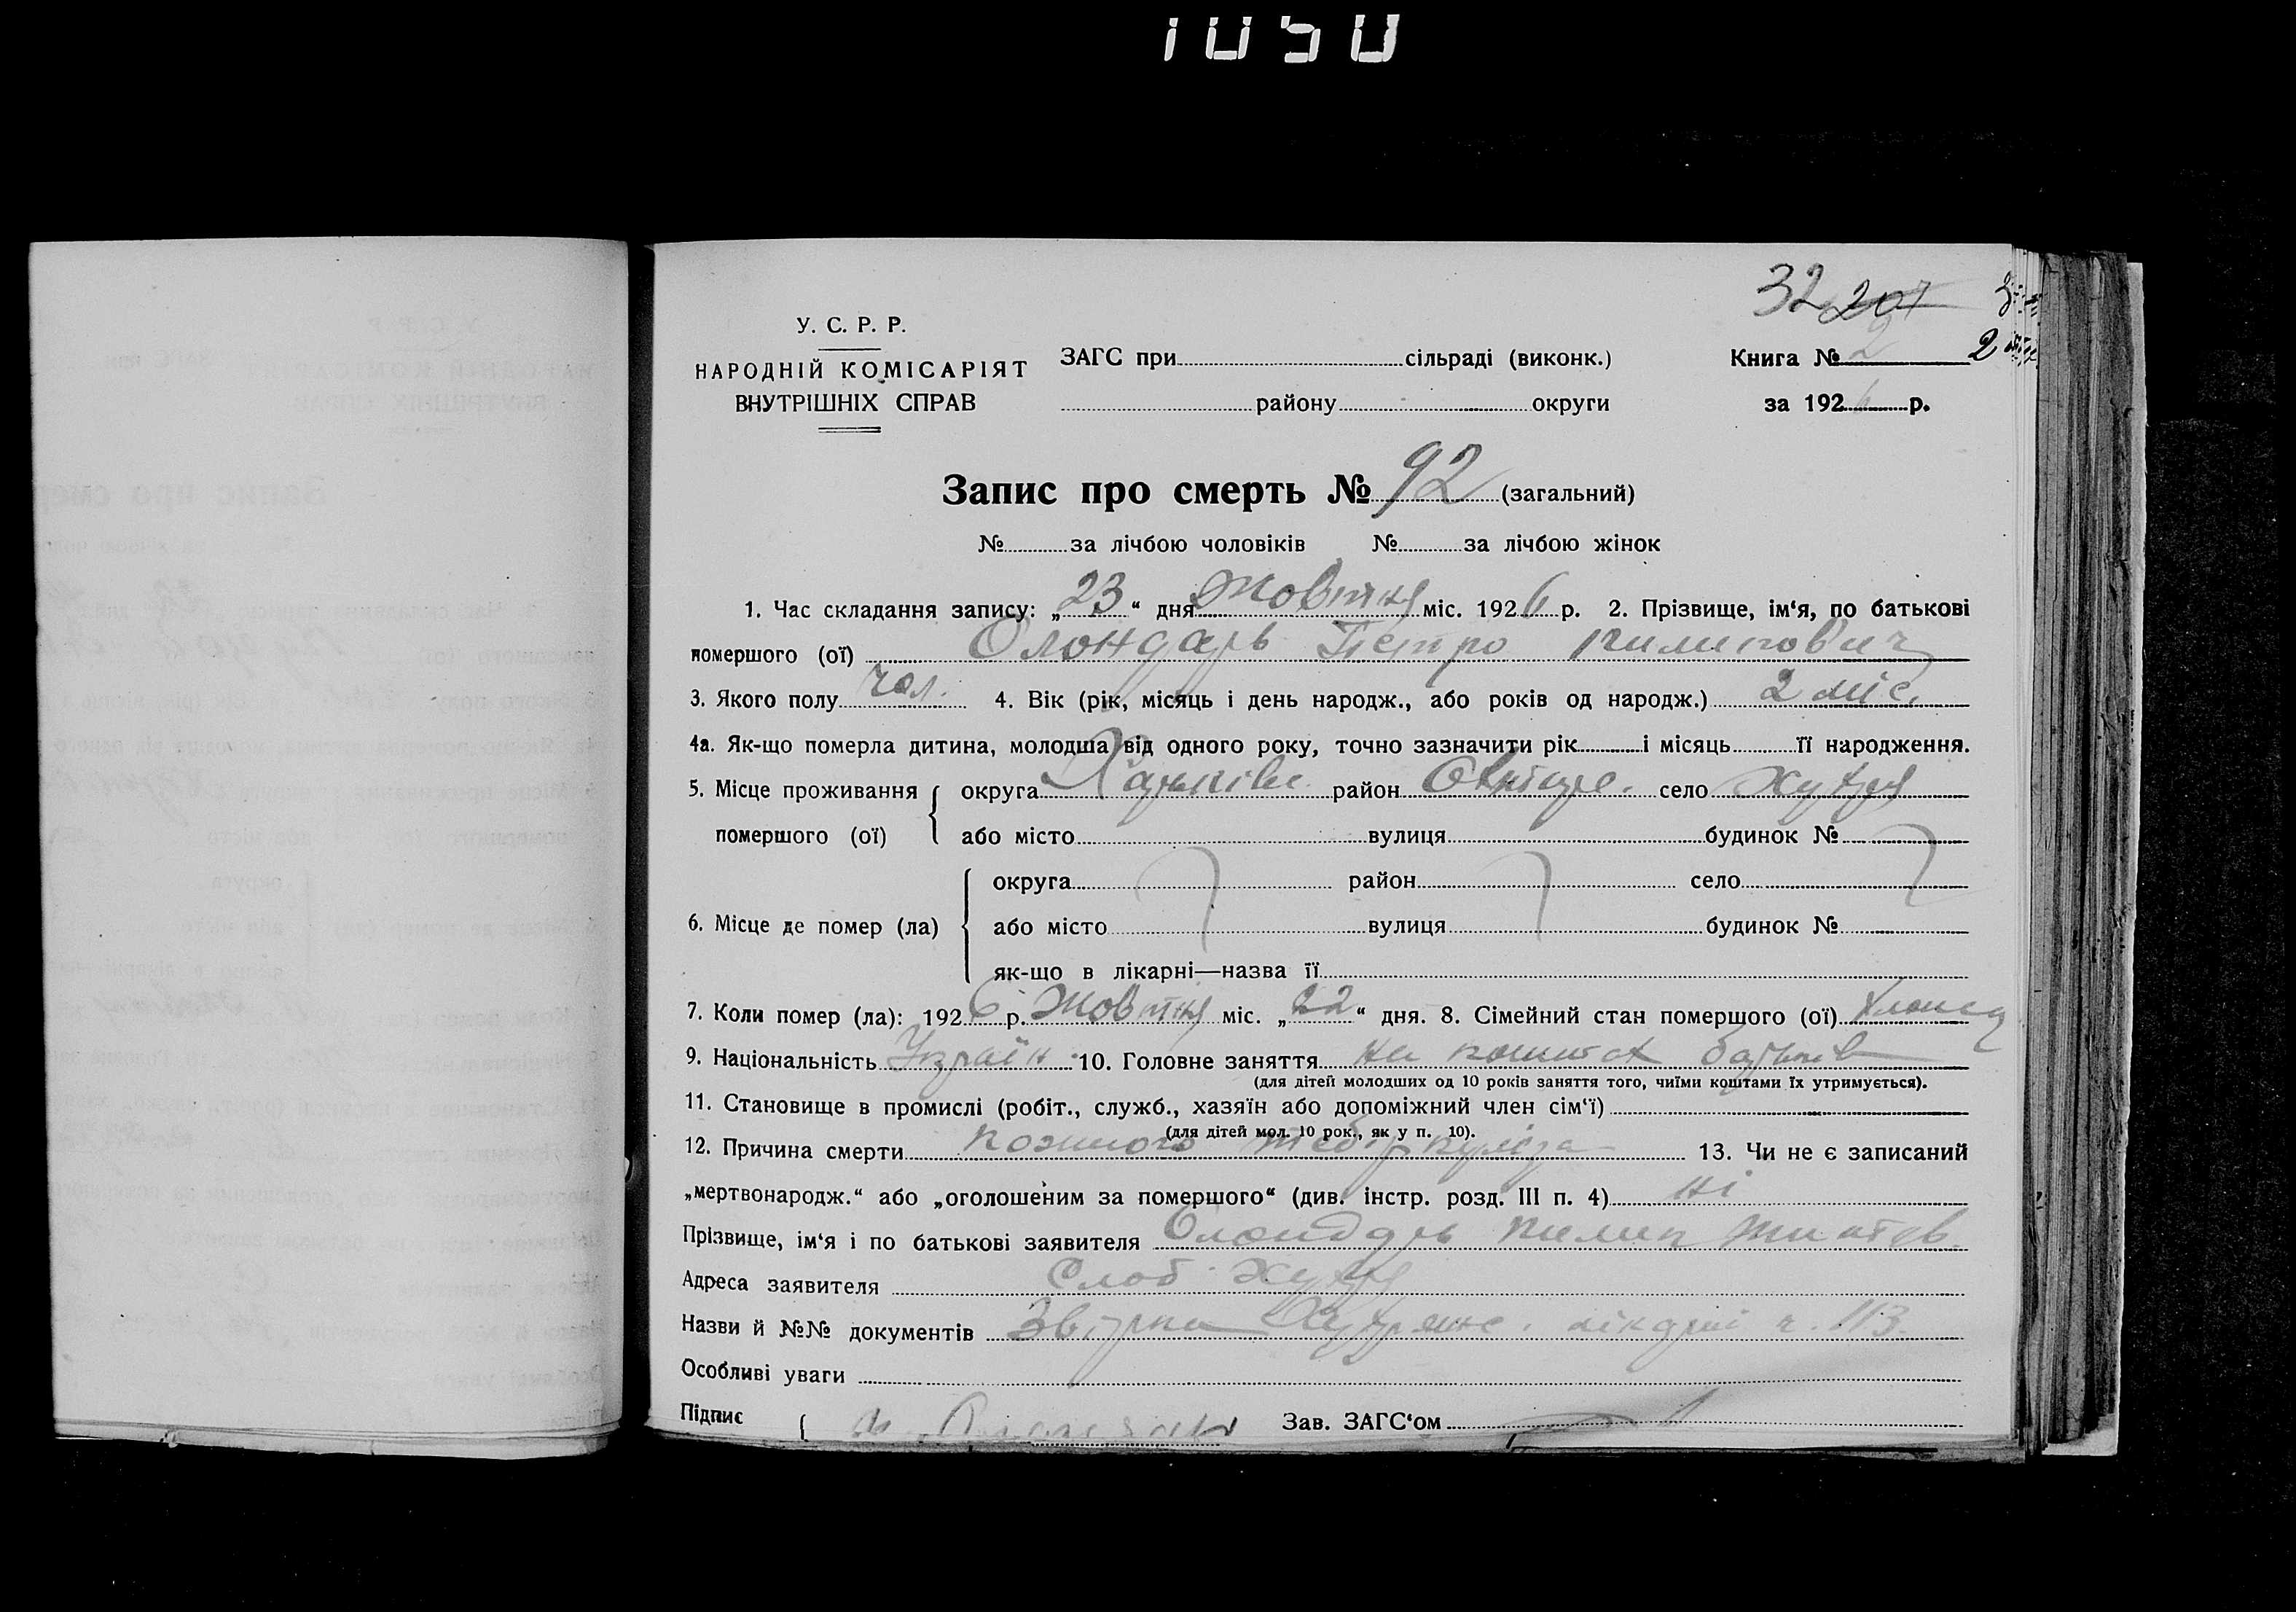 1050
32 207
У. С. Р. Р.
НАРОДНІЙ КОМІСАРІЯТ
ВНУТРІШНІХ СПРАВ
ЗАГС при сільраді (виконк.)
району округи
Книга № 2
за 1926 р.
Запис про смерть № 92 (загальний)
№ за лічбою чоловіків № за лічбою жінок
1. Час складання запису: „23“ дня Жовтня міс. 1926 р. 2. Прізвище, ім‘я, по батькові
помершого (ої) Олондарь Петро Пилипович
3. Якого полу чол. 4. Вік (рік, місяць і день народж., або років од народж.) 2 міс.
4а. Як-що померла дитина, молодша від одного року, точно зазначити рік і місяць її народження.
5. Місце проживання помершого (ої) { округа Харківс. район село
або місто вулиця будинок №
6. Місце де помер (ла) { округа район село
або місто вулиця будинок №
як-що в лікарні—назва її
7. Коли помер (ла): 1926 р. Жовтня міс. „22“ дня. 8. Сімейний стан помершого (ої)
9. Національність Україн. 10. Головне заняття на коштах батьків
(для дітей молодших од 10 років заняття того, чиїми коштами їх утримується).
11. Становище в промислі (робіт., служб., хазяїн або допоміжний член сім‘ї)
(для дітей мол. 10 рок., як у п. 10).
12. Причина смерти 13. Чи не є записаний
„мертвонародж.“ або „оголошеним за помершого“ (див. інстр. розд. III п. 4) ні
Прізвище, ім‘я і по батькові заявителя Олондарь Пилип
Адреса заявителя Слоб.
Назви й №№ документів ч. 113.
Особливі уваги
Підпис { Зав. ЗАГС‘ом